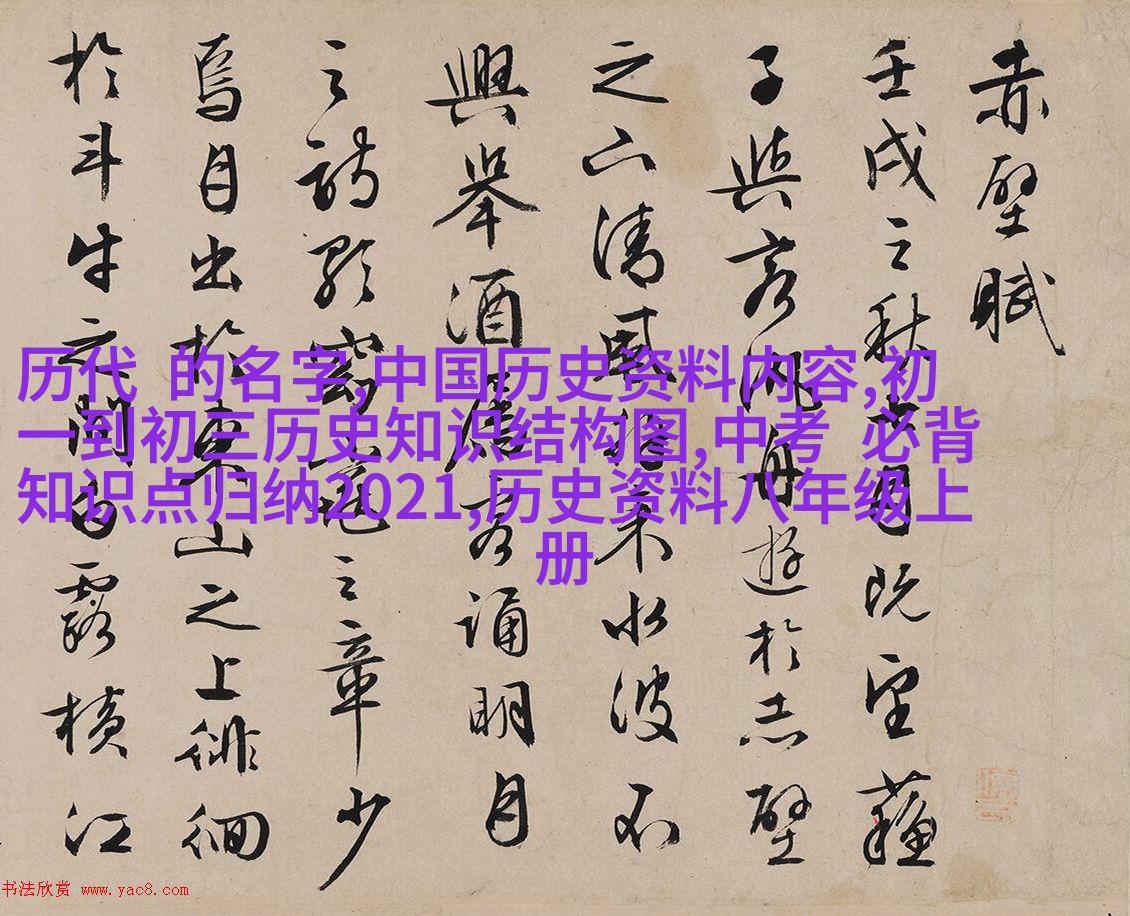 赤壁賦
壬戌之秋七月既望蘇
子與客汎舟遊於赤壁
之下清風徐來水波不
興舉酒屬客誦明月
之詩歌窈窕之章少
焉月出於東山之上徘徊
於斗牛之間白露橫江
历代 的名字,中国历史资料内容,初
一到初三历史知识结构图,中考 必背
知识点归纳2021,历史资料八年级上
册
书法欣赏 www.yac8.com